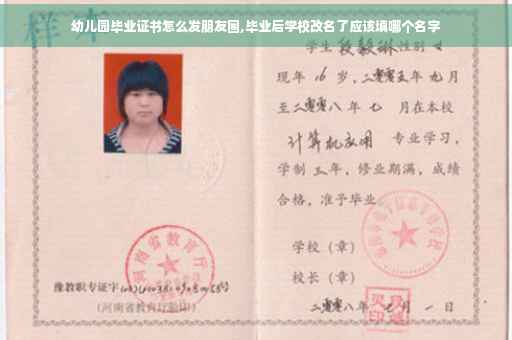 幼儿园毕业证书怎么发朋友圈,毕业后学校改名了应该填哪个名字
样本
学生段毅琳性别女
现年16岁,二零零五年九月
至二零零八年七月在本校
计算机应用 专业学习,
学制三年,修业期满,成绩
合格,准予毕业
学校(章)
校长(章)
二零零八年 月一日
河南省教育厅
豫教职专证字
(河南省教育厅验印)